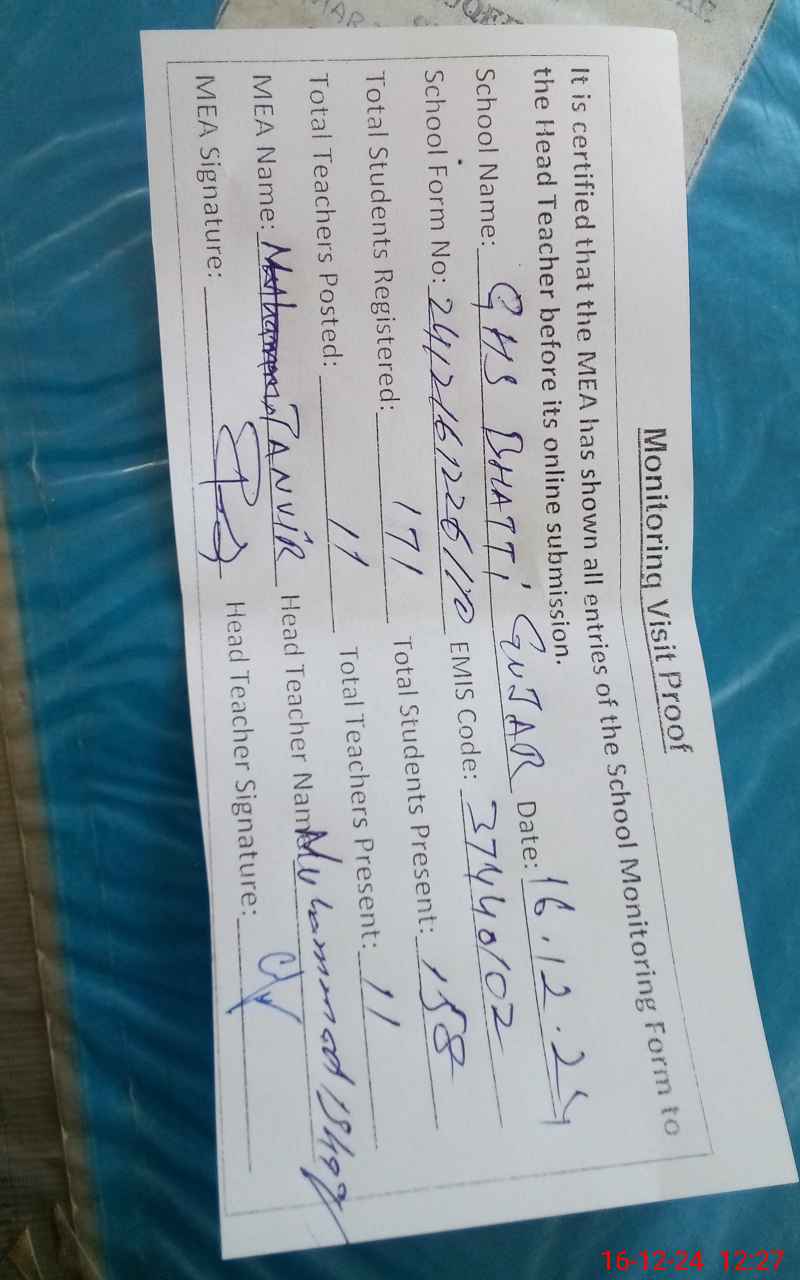 Monitoring Visit Proof
It is certified that the MEA has shown all entries of the School Monitoring Form to
the Head Teacher before its online submission.
School Name: GHS BHATTI GUJAR Date: 16.12.24
School Form No: EMIS Code: 37440102
Total Students Registered: 171 Total Students Present: 158
Total Teachers Posted: 11 Total Teachers Present: 11
MEA Name: TANVIR Head Teacher Name Muhammad Ishaq
MEA Signature: Head Teacher Signature:
16-12-24 12:27